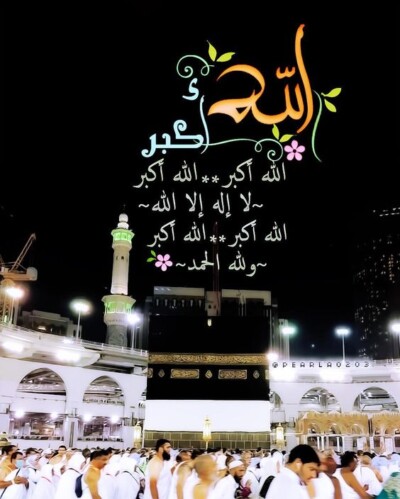 الله أكبر
الله أكبر**الله أكبر
~لا إله إلا الله~
الله أكبر**الله أكبر
~ولله الحمد~
@PEARLA0203